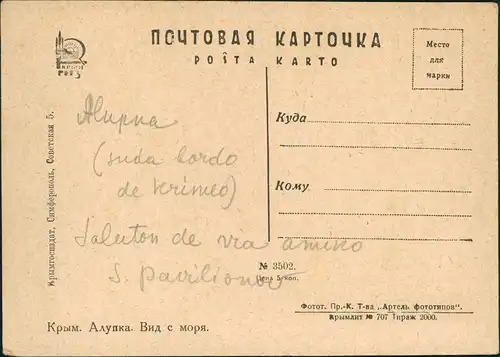 ПОЧТОВАЯ КАРТОЧКА
POŜTA KARTO
Место
для
марки
Куда
Кому
Alupka
(suda bordo
de Krimeo)
Saluton de via amiko
S. Pavilionov
№ 3502.
Цена 5 коп.
Фотот. Пр.-К. Т-ва „Артель фототипов".
Крымлит № 707 Тираж 2000.
Крым. Алупка. Вид с моря.
Крымгосиздат, Симферополь, Советская 5.